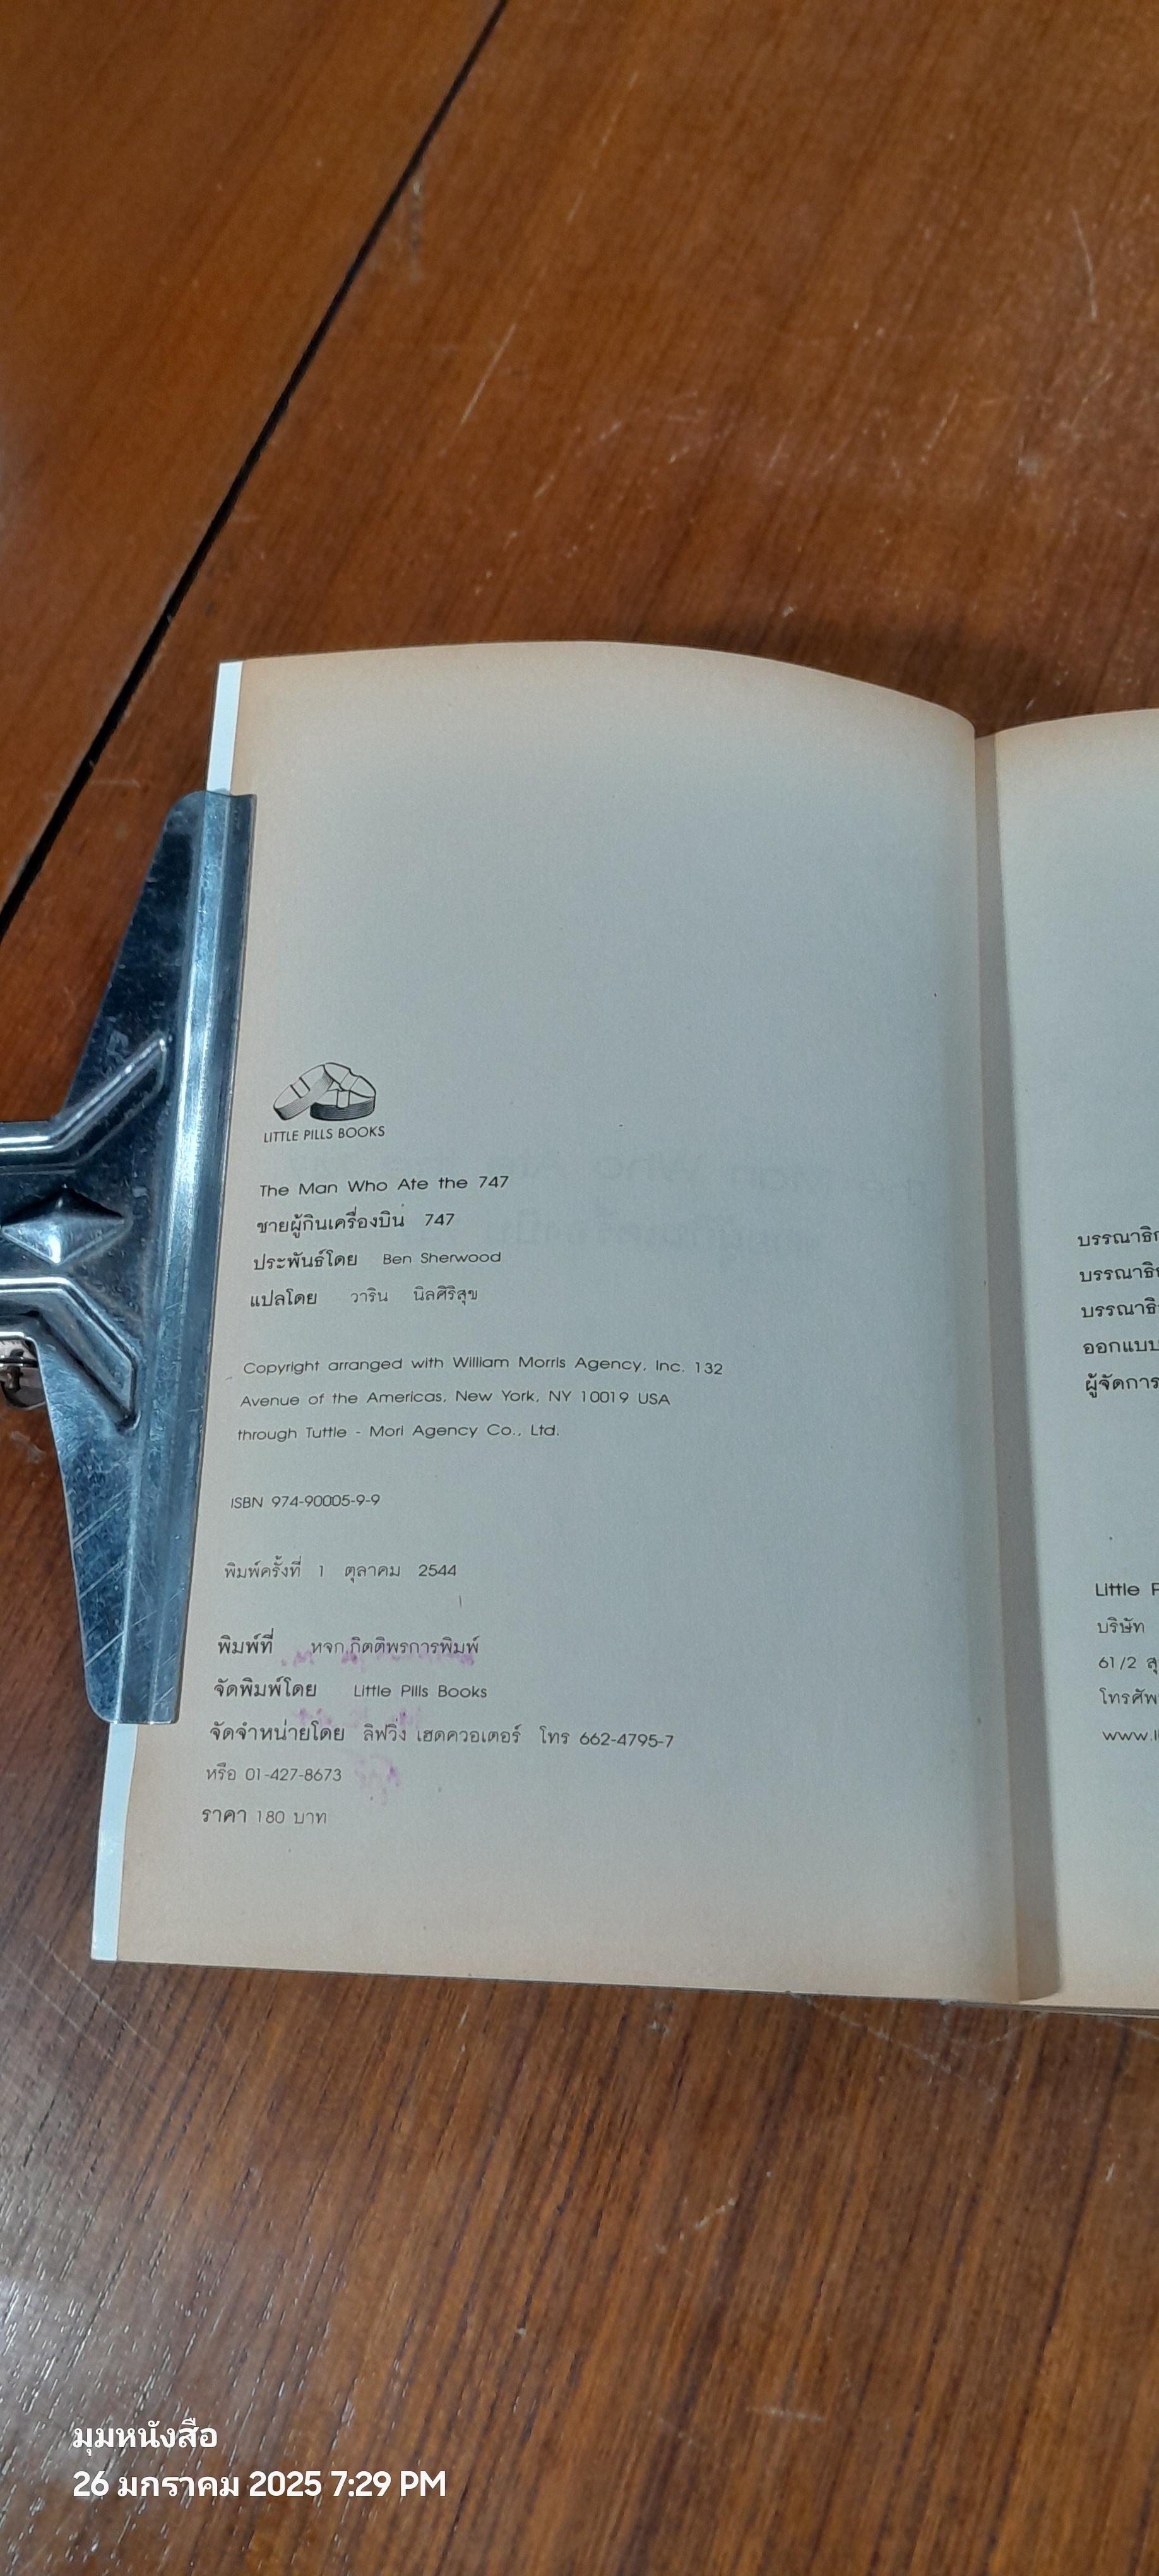 LITTLE PILLS BOOKS
The Man Who Ate the 747
ชายผู้กินเครื่องบิน 747
ประพันธ์โดย Ben Sherwood
แปลโดย วาริน นิลศิริสุข
Copyright arranged with William Morris Agency, Inc. 132
Avenue of the Americas, New York, NY 10019 USA
through Tuttle - Mori Agency Co., Ltd.
ISBN 974-90005-9-9
พิมพ์ครั้งที่ 1 ตุลาคม 2544
พิมพ์ที่ หจก.กิตติพรการพิมพ์
จัดพิมพ์โดย Little Pills Books
จัดจำหน่ายโดย ลิฟวิ่ง เฮดควอเตอร์ โทร 662-4795-7
หรือ 01-427-8673
ราคา 180 บาท
บรรณาธิ
บรรณาธิ
บรรณาธิ
ออกแบบ
ผู้จัดการ
Little
บริษัท
61/2
โทรศัพ
www.
มุมหนังสือ
26 มกราคม 2025 7:29 PM